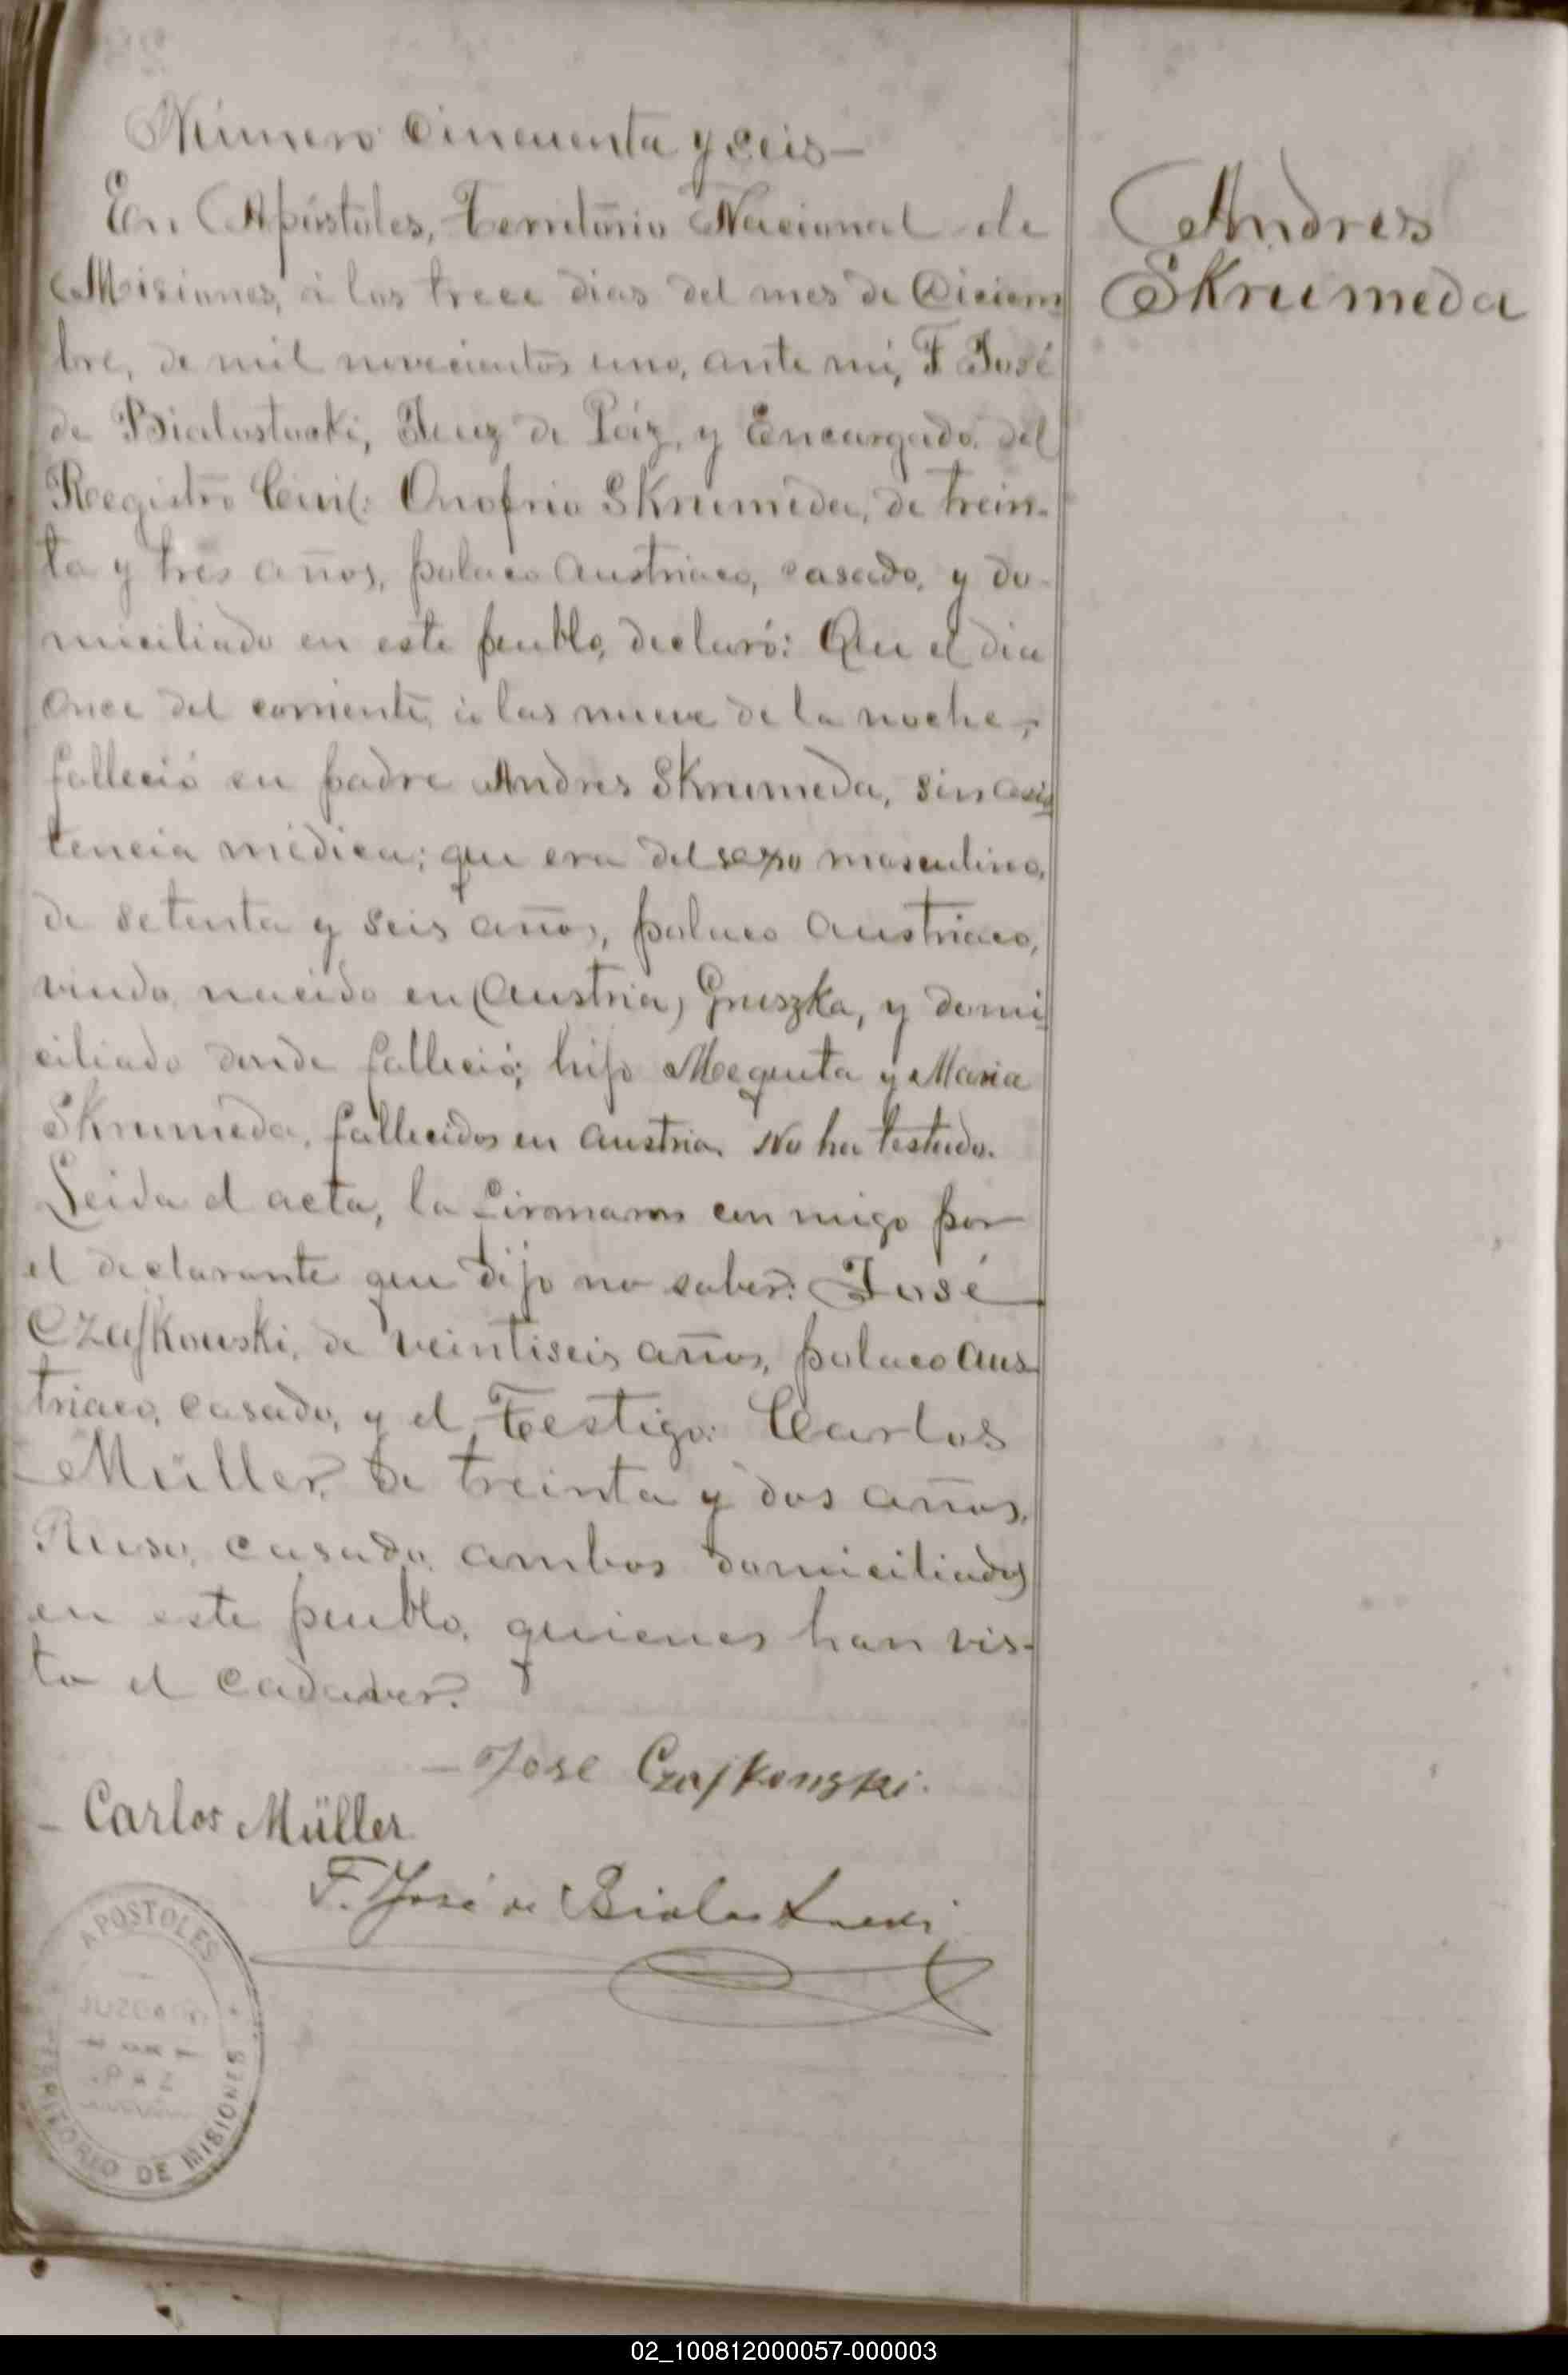 Número cincuenta y seis—
En Apóstoles, Territorio Nacional de
Misiones, á los trece dias del mes de Diciem
bre, de mil novecientos uno, ante mi, F José
de Bialostocki, Juez de Páz, y Encargado del
Registro Civil: Onofrio Skrumeda, de trein-
ta y trés años, polaco austriaco, casado, y do-
miciliado en este pueblo, declaró: Que el dia
once del corriente, á las nueve de la noche,
falleció su padre Andres Skrumeda, sin asis
tencia médica; que era del sexo masculino,
de setenta y seis años, polaco austriaco,
viudo, nacido en (Austria) Gruszka, y domi
ciliado donde falleció; hijo Mequeta y Maria
Skrumeda, fallecidos en Austria. No ha testado.
Leida el acta, la firmaron con migo por
el declarante que dijo no saber: José
Czajkowski, de veintiseis años, polaco aus
triaco, casado, y el Testigo: Carlos
Müller, de treinta y dos años,
Ruso, casado, ambos domiciliados
en este pueblo, quienes han vis-
to el cadaver.
Andres
Skrumeda
— Jose Czajkowski.
– Carlos Müller
F. José de Bialostocki
APOSTOLES
JUZGADO
DE
PAZ
TERRITORIO DE MISIONES
02_100812000057-000003